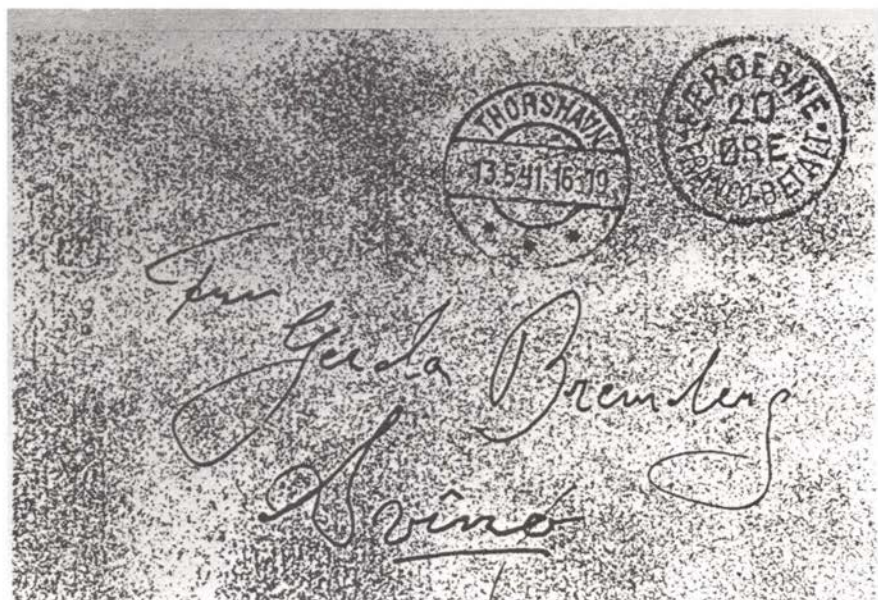 THORSHAVN
13.5.41.16-19
FÆRØERNE
20
ØRE
FRANCO BETALT
Fru
Gerda
Svînö